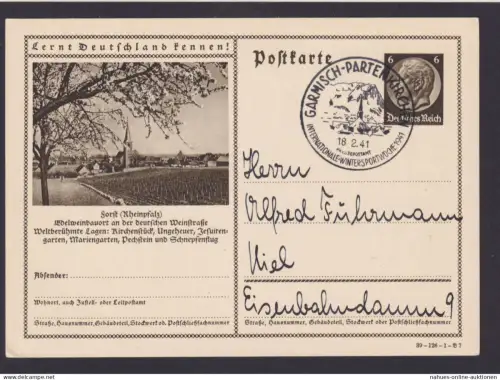 Lernt Deutschland kennen!
Forst (Rheinpfalz)
Edelweinbauort an der deutschen Weinstraße
Weltberühmte Lagen: Kirchenstück, Ungeheuer, Jesuiten-
garten, Mariengarten, Pechstein und Schnepfenflug
Absender:
Wohnort, auch Zustell- oder Leitpostamt
Straße, Hausnummer, Gebäudeteil, Stockwerk od. Postschließfachnummer
Postkarte
GARMISCH-PARTENKIRCHEN
18.2.41
INTERNATIONALE-WINTERSPORTWOCHE 1941
6 6
Deutsches Reich
Herrn
Alfred Fuhrmann
Kiel
Eisenbahndamm 9
Straße, Hausnummer, Gebäudeteil, Stockwerk oder Postschließfachnummer
39-128-1-B7
https://www.delcampe.net
nahues-online-auktionen